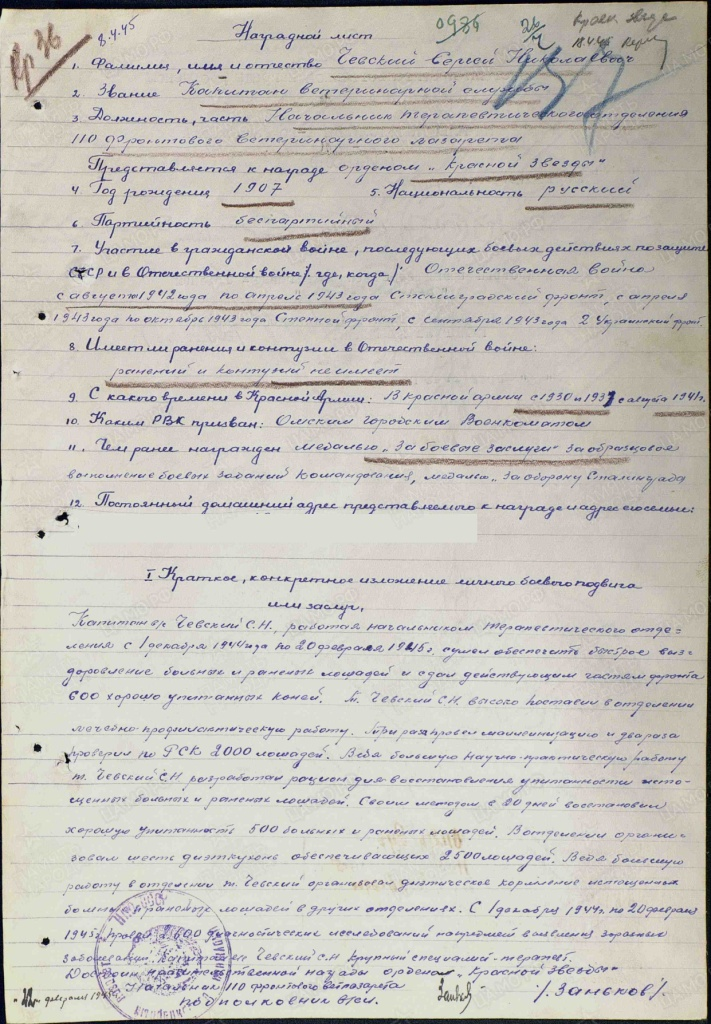 Кр 36
8.4.45
Наградной лист
1. Фамилия, имя и отчество Чевский Сергей Николаевич
2. Звание Капитан ветеринарной службы
3. Должность, часть Начальник терапевтического отделения
110 фронтового ветеринарного лазарета
Представляется к награде орденом "Красной Звезды"
4. Год рождения 1907 5. Национальность русский
6. Партийность беспартийный
7. Участие в гражданской войне, последующих боевых действиях по защите
СССР и в Отечественной войне /где, когда/ Отечественная война
с августа 1942 года по апрель 1943 года Сталинградский фронт, с апреля
1943 года по октябрь 1943 года Степной фронт, с сентября 1943 года 2 Украинский фронт.
8. Имеет ли ранения и контузии в Отечественной войне:
ранений и контузий не имеет
9. С какого времени в Красной Армии: В красной армии с 1930 и 1937 с августа 1941 г.
10. Каким РВК призван: Омским городским Военкоматом
11. Чем ранее награжден медалью "За боевые заслуги" За образцовое
выполнение боевых заданий командования, медалью "За оборону Сталинграда
12. Постоянный домашний адрес представляемого к награде и адрес его семьи:
I Краткое, конкретное изложение личного боевого подвига
или заслуг,
Капитан в/с Чевский С.Н., работая начальником терапевтического отде-
ления с 1 декабря 1944 года по 20 февраля 1945 г. сумел обеспечить быстрое выз-
доровление больных и раненых лошадей и сдал действующим частям фронта
600 хорошо упитанных коней. Т. Чевский С.Н. высоко поставил в отделении
лечебно-профилактическую работу. Три раза провел маллеинизацию и два раза
проверил по РСК 2000 лошадей. Ведя большую научно-практическую работу
т. Чевский С.Н разработал рацион для восстановления упитанности исто-
щенных больных и раненых лошадей. Своим методом в 20 дней восстановил
хорошую упитанность 500 больных и раненых лошадей. В отделении органи-
зовал шесть диэткухонь обеспечивающих 2500 лошадей. Ведя большую
работу в отделении т. Чевский организовал диэтическое кормление истощенных
больных и раненых лошадей в других отделениях. С 1 декабря 1944 г. по 20 февраля
1945 г. провел 2600 диагностических исследований на предмет выявления заразных
заболеваний. Капитан в/с Чевский С.Н Крупный специалист-терапевт.
Достоин правительственной награды ордена "Красной Звезды"
Начальник 110 фронтового ветлазарета
подполковник в/сл. /Заньков/.
"22" февраля 1945